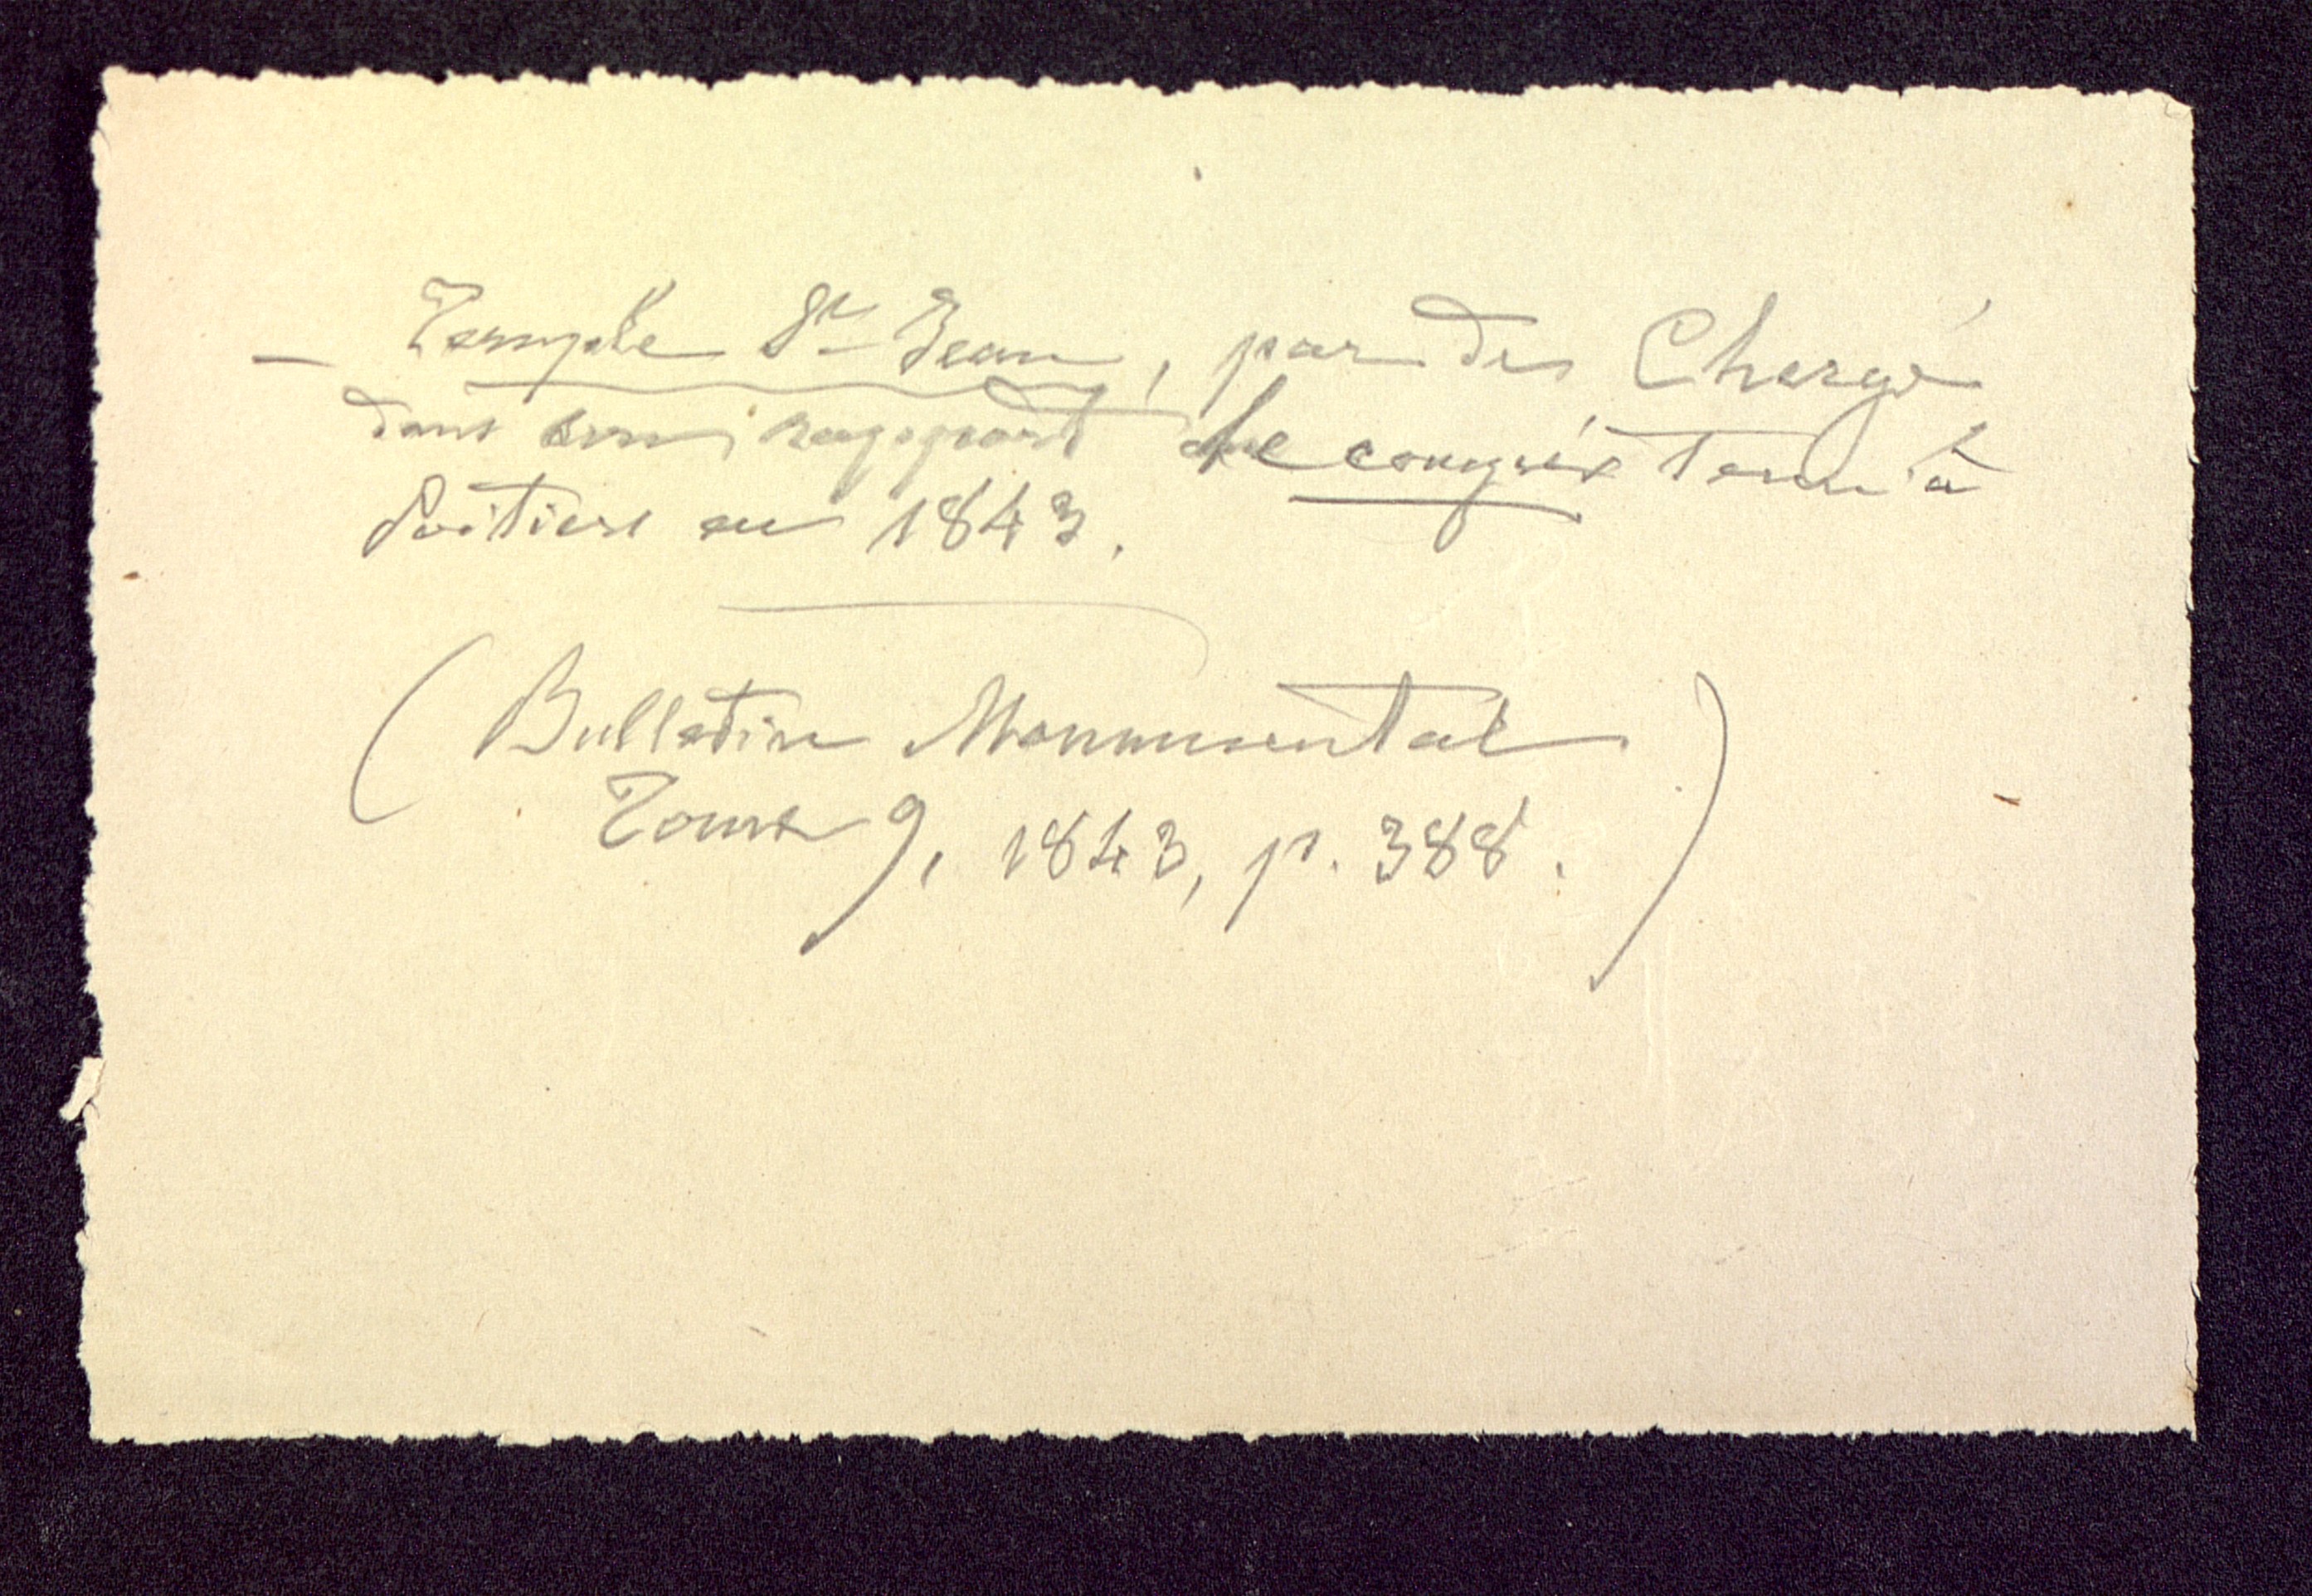 – Temple St Jean, par de Chergé
dans son rapport sur le congrès tenu à
Poitiers en 1843.
(Bulletin Monumental
Tome 9, 1843, p. 388.)